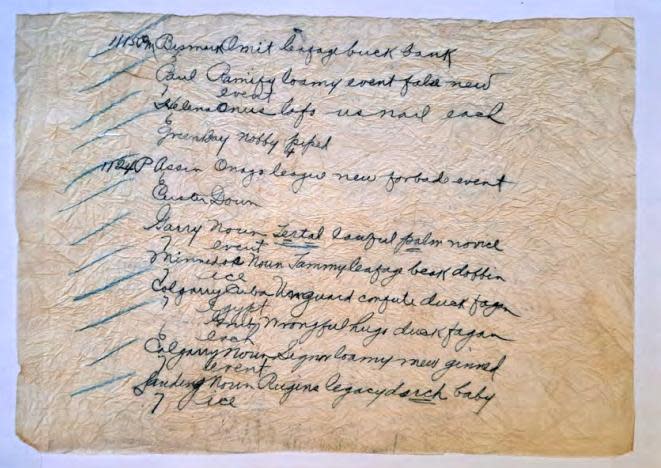 1150 Pm Bismark Omit leafage buck bank
Paul Ramify loamy event false new
7 event
Helena Onus lofo usnail each
E
Greenbay nobby piped
1124 P Assin Onago league new forbade event
E
Custer Down
Garry Noun Tertal lawful palm novice
7 event
Minnedos Noun Jammy leafage beak dobbin
7 ice
Calgarry Cuba Unguard confute duck fagan
7 Egypt
Grit wrongful hugs duck fagan
E each
Calgarry Noun Signor loamy mew ginned
7 event
Landing Noun Rugins legacy dorch baby
7 ice